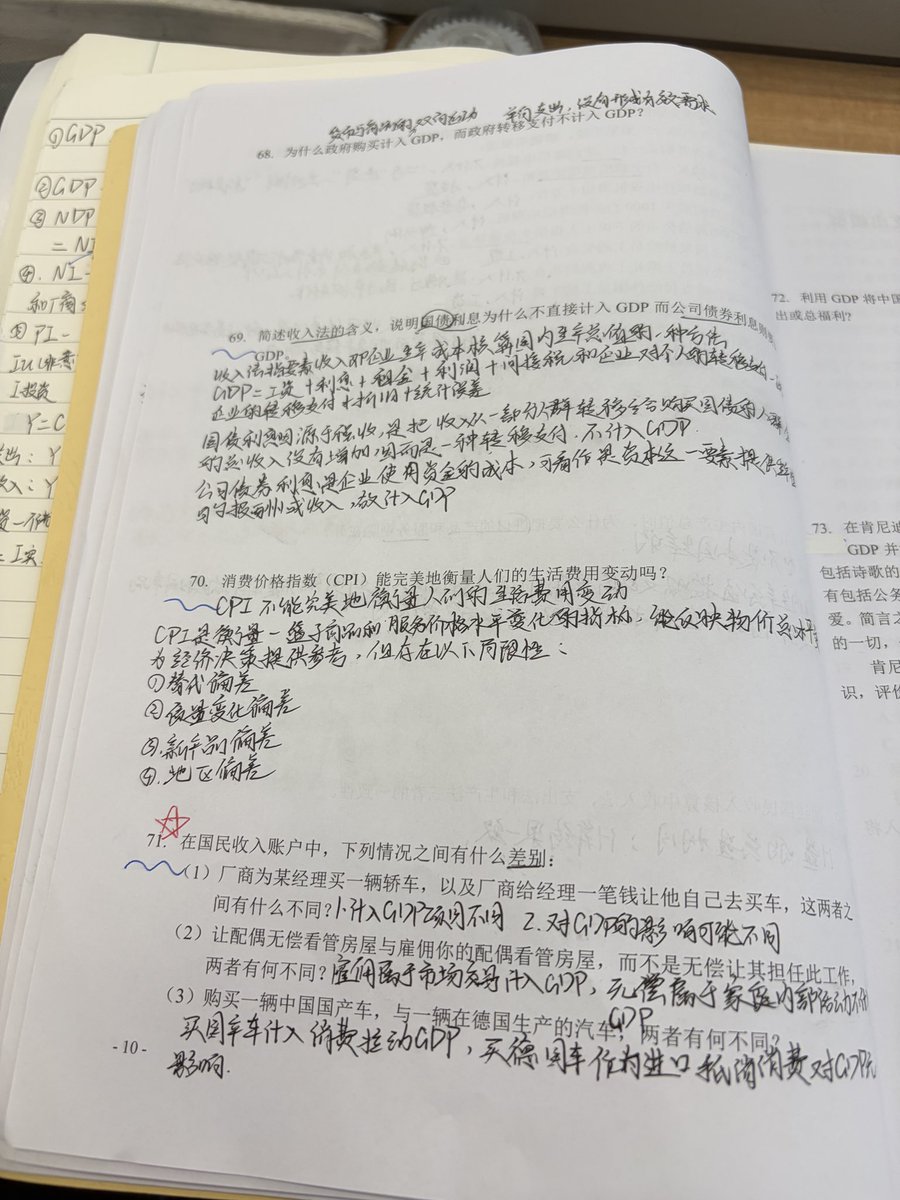 ①GDP
②GDP
③NDP
= NI
④. NI-
⑤ PI-
I投资
Y=C
出: Y
入: Y
货币与商品的双向运动 单向支出, 没有形成有效需求
68. 为什么政府购买计入 GDP，而政府转移支付不计入 GDP？
69. 简述收入法的含义，说明国债利息为什么不直接计入 GDP 而公司债券利息则
GDP。
收入法指要素收入即企业生产成本核算国内生产总值的一种方法
GDP=工资+利息+租金+利润+间接税和企业对个人的转移支付
企业的转移支付+折旧+统计误差
国债利息因源于税收,是把收入从一部分人群转移给购买国债的人群
的总收入没有增加,因而是一种转移支付.不计入GDP
公司债券利息是企业使用资金的成本,可看作是资本这一要素提供
的报酬或收入,故计入GDP
70. 消费价格指数（CPI）能完美地衡量人们的生活费用变动吗？
CPI不能完美地衡量人们的生活费用变动
CPI是衡量一篮子商品和服务价格水平变化的指标, 能反映物价总水平
为经济决策提供参考, 但存在以下局限性:
①替代偏差
②质量变化偏差
③.新产品偏差
④.地区偏差
71. 在国民收入账户中，下列情况之间有什么差别：
（1）厂商为某经理买一辆轿车，以及厂商给经理一笔钱让他自己去买车，这两者之
间有什么不同？1.计入GDP项目不同 2.对GDP的影响可能不同
（2）让配偶无偿看管房屋与雇佣你的配偶看管房屋，而不是无偿让其担任此工作，
两者有何不同？雇佣属于市场交易计入GDP, 无偿属于家庭内部活动不
GDP
（3）购买一辆中国国产车，与一辆在德国生产的汽车，两者有何不同？
买国产车计入消费拉动GDP, 买德国车作为进口抵消消费对GDP无
影响.
- 10 -
72. 利用 GDP 将中国
出或总福利？
73. 在肯尼迪
GDP 并
包括诗歌的
有包括公务
爱。简言之
的一切，
肯尼
识，评价